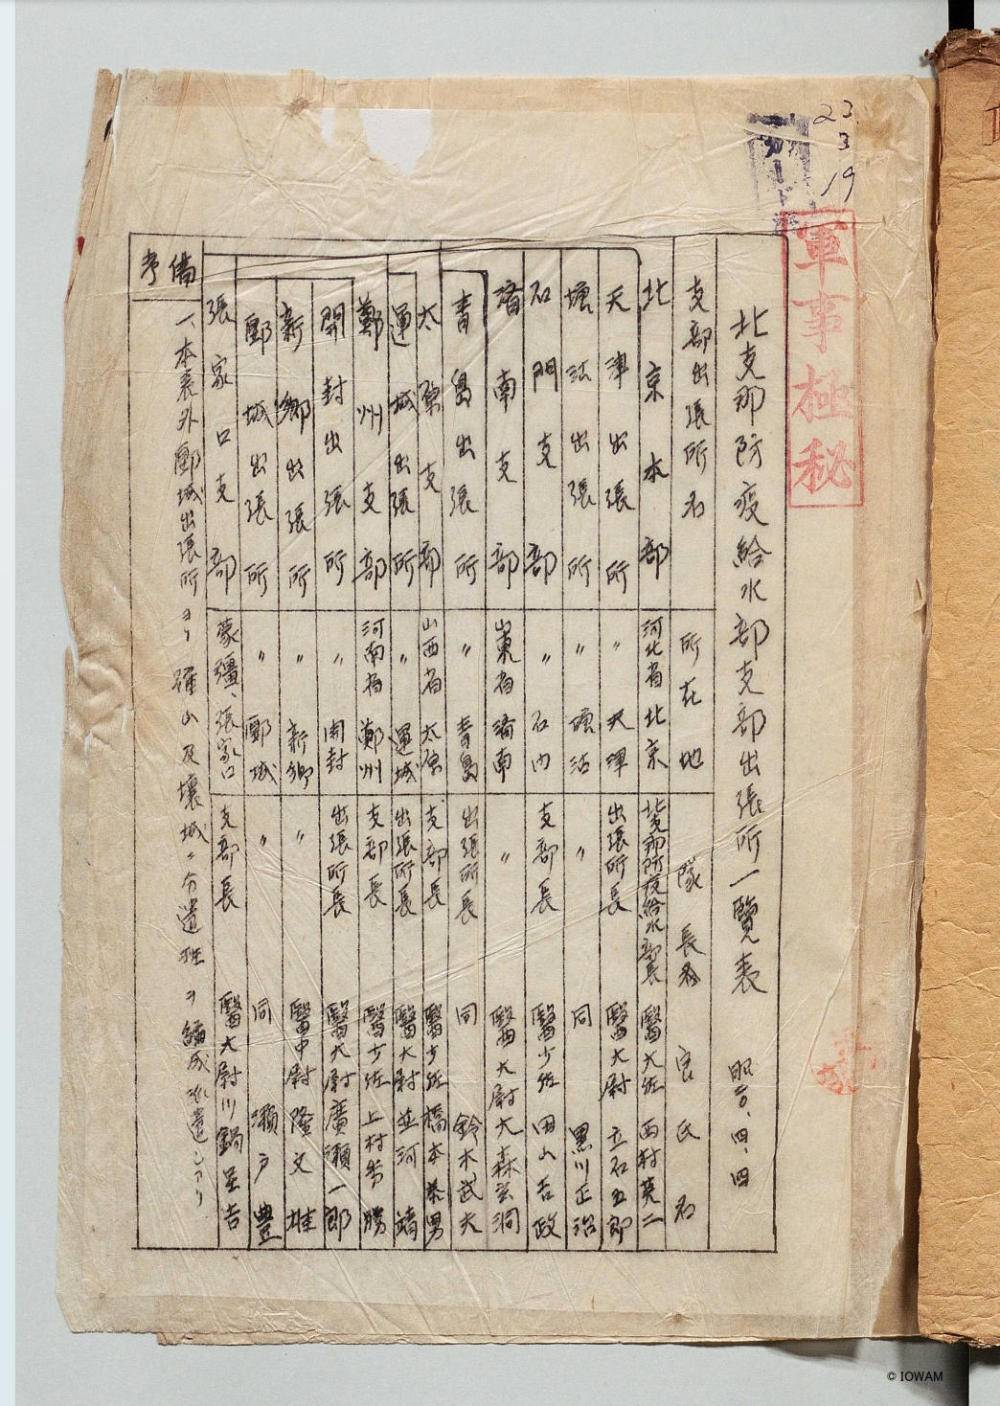 23
3
19
軍事極秘
北支那防疫給水部支部出張所一覽表 昭二〇、四、四
支部出張所名 所在地 隊長名 官氏名
北京本部 河北省北京 北支那防疫給水部長 醫大佐 西村英二
天津出張所 〃 天津 出張所長 醫大尉 立石五郎
塘沽出張所 〃 塘沽 〃 同 黒川正治
石門支部 〃 石门 支部長 醫少佐 田山吉政
濟南支部 山東省濟南 〃 醫大尉 大森玄洞
青島出張所 〃 青島 出張所長 同 鈴木武夫
太原支部 山西省太原 支部長 醫少佐 橋本泰男
運城出張所 〃 運城 出張所長 醫大尉 並河靖
鄭州支部 河南省鄭州 支部長 醫少佐 上村秀勝
開封出張所 〃 開封 出張所長 醫大尉 廣瀬一郎
新鄉出張所 〃 新鄉 〃 醫中尉 隆文雄
郾城出張所 〃 郾城 〃 同 瀬戸豊
張家口支部 蒙疆、張家口 支部長 醫大尉 川鍋里吉
備考
一、本表外郾城出張所ヨリ確山及壤城ニ分遣班ヲ編成派遣シアリ
© IOWAM